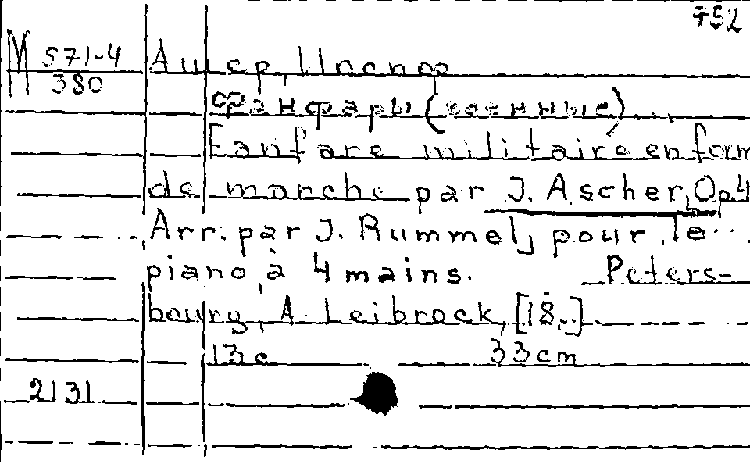 752
М 571-4
380
Ашер, Иосиф
Фанфары (военные)...
Fanfare militaire en form
de marche par J. Ascher, Op 4
Arr. par J. Rummel, pour le
piano à 4 mains. Peters-
bourg, A. Leibrock, [18..]
13 c 33 cm
2131